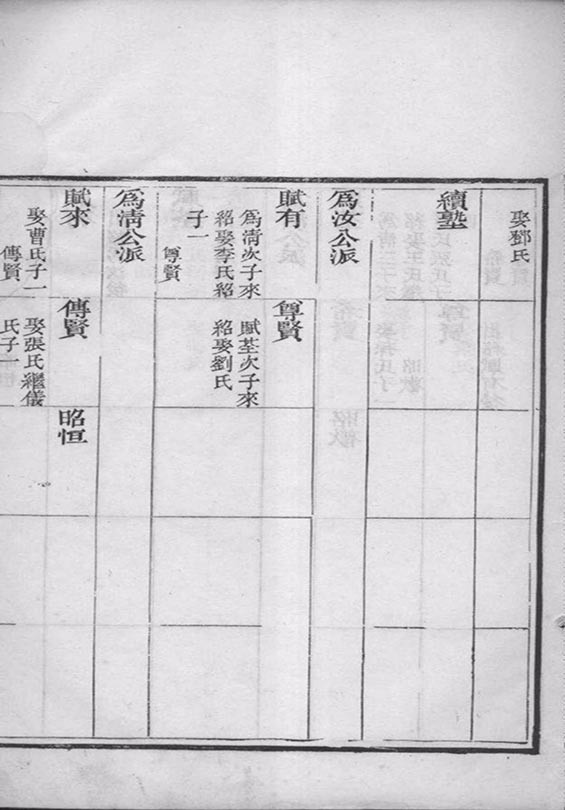 娶鄧氏
續塾
為汝公派
賦有
為清次子來
紹娶李氏紹
子一
尊賢
尊賢
賦荃次子來
紹娶劉氏
為清公派
賦來
娶曹氏子一
傳賢
傳賢
娶張氏繼儀
氏子一
昭恒